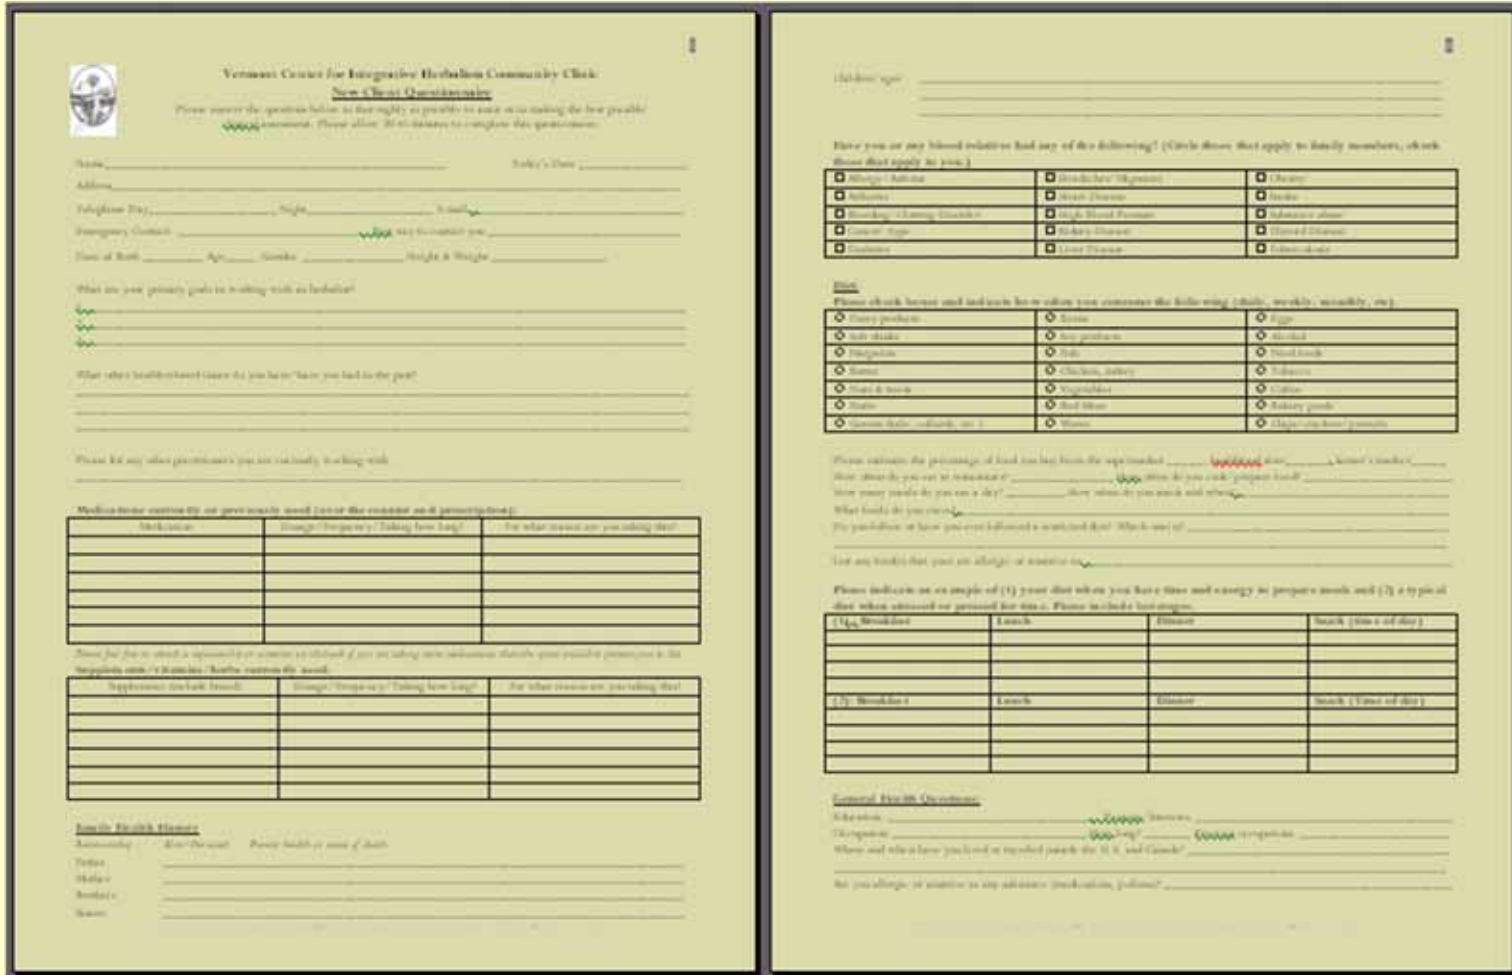 Vermont Center for Integrative Herbalism Community Clinic
New Client Questionnaire
Please answer the questions below as thoroughly as possible to assist us in making the best possible
clinical assessment. Please allow minutes to complete this questionnaire.
Name Today's Date
Address
Telephone Day Night E-mail
Emergency Contact Best way to contact you
Date of Birth Age Gender Height & Weight
What are your primary goals in working with an herbalist?
1.
2.
3.
What other health-related issues do you have/have you had in the past?
Please list any other practitioners you are currently working with
Medications currently or previously used (over the counter and prescription):
Medication Dosage/Frequency/Taking how long? For what reason are you taking this?
Supplements/vitamins/herbs currently used:
Supplement (include brand) Dosage/Frequency/Taking how long? For what reason are you taking this?
Family Health History
Relationship Alive/Deceased Present health or cause of death
Father
Mother
Brothers
Sisters
Children/ages
Have you or any blood relatives had any of the following? (Circle those that apply to family members, check
those that apply to you.)
Allergy/Asthma Headaches/Migraines Obesity
Arthritis Heart Disease Stroke
Bleeding/Clotting Disorder High Blood Pressure Substance abuse
Cancer/type Kidney Disease Thyroid Disease
Diabetes Liver Disease Tuberculosis
Diet
Please check boxes and indicate how often you consume the following (daily, weekly, monthly, etc).
Dairy products Beans Eggs
Soft drinks Soy products Alcohol
Margarine Fish Fried foods
Butter Chicken, turkey Tobacco
Nuts & seeds Vegetables Coffee
Fruits Red Meat Bakery goods
Greens (kale, collards, etc.) Water Chips/crackers/pretzels
Please estimate the percentage of food you buy from the supermarket healthfood store farmer's market
How often do you eat in restaurants? How often do you cook/prepare food?
How many meals do you eat a day? How often do you snack and when
What foods do you crave
Do you follow or have you ever followed a restricted diet? Which one(s)?
List any food(s) that you are allergic or sensitive to
Please indicate an example of (1) your diet when you have time and energy to prepare meals and (2) a typical
diet when stressed or pressed for time. Please include beverages.
(1). Breakfast Lunch Dinner Snack (time of day)
(2). Breakfast Lunch Dinner Snack (Time of day)
General Health Questions:
Education Interests
Occupation How long? Previous occupations
Where and when have you lived or traveled outside the U.S. and Canada?
Are you allergic or sensitive to any substance (medications, pollens)?